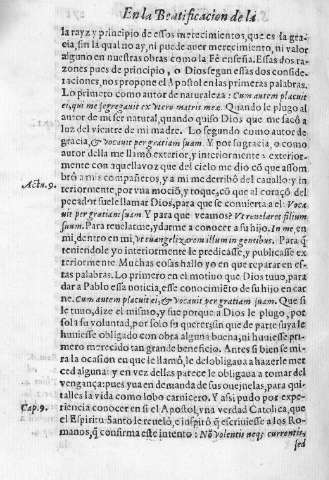 En la Beatificacion de la
la rayz y principio de essos merecimientos, que es la gra-
cia, sin la qual no ay, ni puede auer merecimiento, ni valor
alguno en nuestras obras como la Fè enseña. Essas dos ra-
zones pues de principio, o Dios segun essas dos conside-
raciones, nos propone el Apostol en las primeras palabras.
Lo primero como autor de naturaleza: Cum autem placuit
ei, qui me segregauit ex vtero matris meæ. Quando le plugo al
autor de mi ser natural, quando quiso Dios que me sacó a
luz del vientre de mi madre. Lo segundo como autor de
gracia, & vocauit per gratiam suam. Y por su gracia, o como
autor della me llamò exterior, y interiormente: exterior-
mente con aquella voz que del cielo me dio cõ que assom
brò a mis compañeros, y a mi me derribò del cauallo y in
Actu. 9. teriormente, por vna mociõ, y toque, cõ que al coraçõ del
pecador suele llamar Dios, para que se conuierta a el: Voca
uit per gratiam suam. Y para que veamos? Vt reuelaret filium
suum. Para reuelarme, y darme a conocer a su hijo. In me, en
mi, dentro en mi, Vt euangelizarem illum in gentibus. Para q̃
teniendole yo interiormente le predicasse, y publicasse ex
teriormente. Muchas cosas hallo yo en que reparar en es-
tas palabras. Lo primero en el motiuo que Dios tuuo, para
dar a Pablo essa noticia, esse conocimiẽto de su hijo en car
ne. Cum autem placuit ei, & vocauit per gratiam suam. Que si
le tuuo, dize el mismo, y fue porque a Dios le plugo, por
sola su voluntad, por solo su querer sin que de parte suya le
huuiesse obligado con obra alguna buena, ni huuiesse pri-
mero merecido tan grande beneficio. Antes si bien se mi-
ra la ocasion en que le llamò, le desobligaua a hazerle mer
ced alguna: y en vez dellas parece le obligaua a tomar del
vengança: pues yua en demanda de sus ouejuelas, para qui-
talles la vida como lobo carnicero. Y assi pudo por expe-
Cap. 9. riencia conocer en si el Apostol, vna verdad Catolica, que
el Espiritu Santo le reuelò, e inspirò q̃ escriuiesse a los Ro-
manos, q̃ confirma este intento: Nõ volentis neq; currentis,
sed